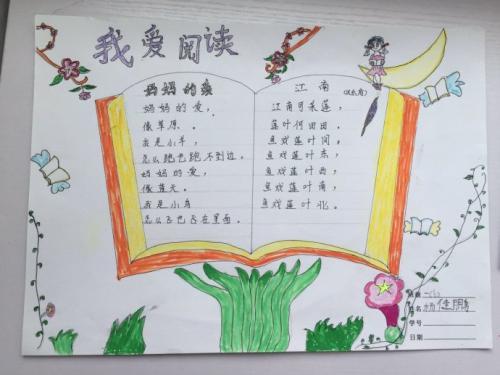 我爱阅读
妈妈的爱
妈妈的爱，
像草原。
我是小羊，
怎么跑也跑不到边。
妈妈的爱，
像蓝天。
我是小鸟
怎么飞也飞在里面。
江南
(汉乐府)
江南可采莲，
莲叶何田田。
鱼戏莲叶间。
鱼戏莲叶东，
鱼戏莲叶西，
鱼戏莲叶南，
鱼戏莲叶北。
班级 一(6)
姓名 杨佳鹏
学号
日期